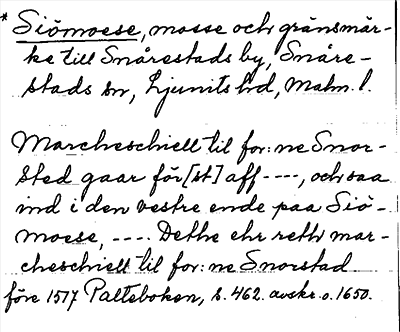 * Siömoese, mosse och gränsmär-
ke till Snårestads by, Snåre-
stads sn, Ljunits hd, Malm. l.
Marcheschiell til for: ne Snor-
sted gaar för[st] aff ----, och saa
ind i den vestre ende paa Siö-
moese, ---- Dethe ehr reth mar-
cheschiell til for: ne Snorstad
före 1517 Palteboken, s. 462. avskr. o. 1650.